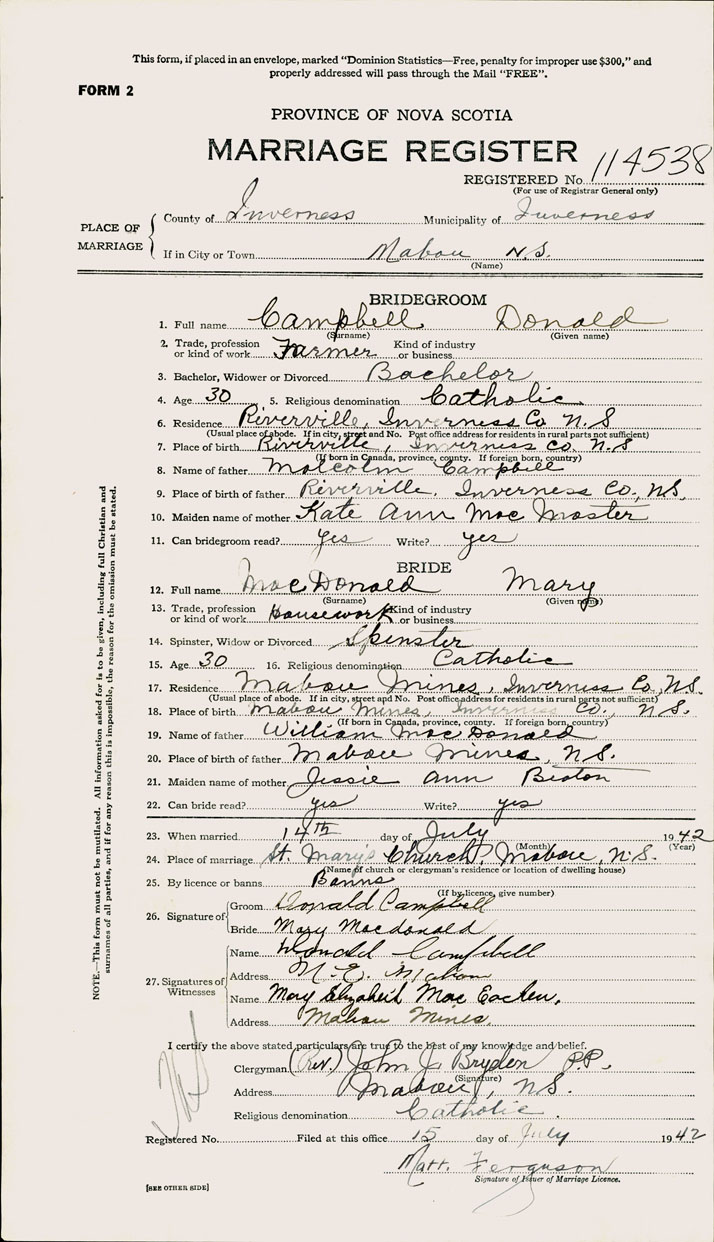 This form, if placed in an envelope, marked "Dominion Statistics—Free, penalty for improper use $300," and
properly addressed will pass through the Mail "FREE".
FORM 2
PROVINCE OF NOVA SCOTIA
MARRIAGE REGISTER
REGISTERED No. 114538
(For use of Registrar General only)
PLACE OF MARRIAGE
County of Inverness Municipality of Inverness
If in City or Town Mabou N.S.
(Name)
BRIDEGROOM
1. Full name Campbell Donald
(Surname) (Given name)
2. Trade, profession or kind of work Farmer Kind of industry or business
3. Bachelor, Widower or Divorced Bachelor
4. Age 30 5. Religious denomination Catholic
6. Residence Riverville, Inverness Co. N.S
(Usual place of abode. If in city, street and No. Post office address for residents in rural parts not sufficient)
7. Place of birth Riverville, Inverness Co. N.S
(If born in Canada, province, county. If foreign born, country)
8. Name of father Malcolm Campbell
9. Place of birth of father Riverville. Inverness Co., N.S.
10. Maiden name of mother Kate Ann Mac Master
11. Can bridegroom read? yes Write? yes
BRIDE
12. Full name Mac Donald Mary
(Surname) (Given name)
13. Trade, profession or kind of work Housework Kind of industry or business
14. Spinster, Widow or Divorced Spinster
15. Age 30 16. Religious denomination Catholic
17. Residence Mabou Mines, Inverness Co., N.S.
(Usual place of abode. If in city, street and No. Post office address for residents in rural parts not sufficient)
18. Place of birth Mabou Mines, Inverness Co., N.S.
(If born in Canada, province, county. If foreign born, country)
19. Name of father William Mac Donald
20. Place of birth of father Mabou Mines, N.S.
21. Maiden name of mother Jessie Ann Beaton
22. Can bride read? yes Write? yes
23. When married 14th day of July 1942
(Month) (Year)
24. Place of marriage St. Mary's Church, Mabou, N.S.
(Name of church or clergyman's residence or location of dwelling house)
25. By licence or banns Banns
(If by licence, give number)
26. Signature of
Groom Donald Campbell
Bride Mary Macdonald
27. Signatures of Witnesses
Name Donald Campbell
Address N.E. Mabou
Name Mary Elizabeth Mac Eachen.
Address Mabou Mines.
I certify the above stated particulars are true to the best of my knowledge and belief.
Clergyman (Rev.) John J. Bryden P.P.
(Signature)
Address Mabou, N.S.
Religious denomination Catholic.
Registered No. Filed at this office 15 day of July 1942
Matt. Ferguson
Signature of Issuer of Marriage Licence.
[SEE OTHER SIDE]
NOTE.—This form must not be mutilated. All information asked for is to be given, including full Christian and
surnames of all parties, and if for any reason this is impossible, the reason for the omission must be stated.